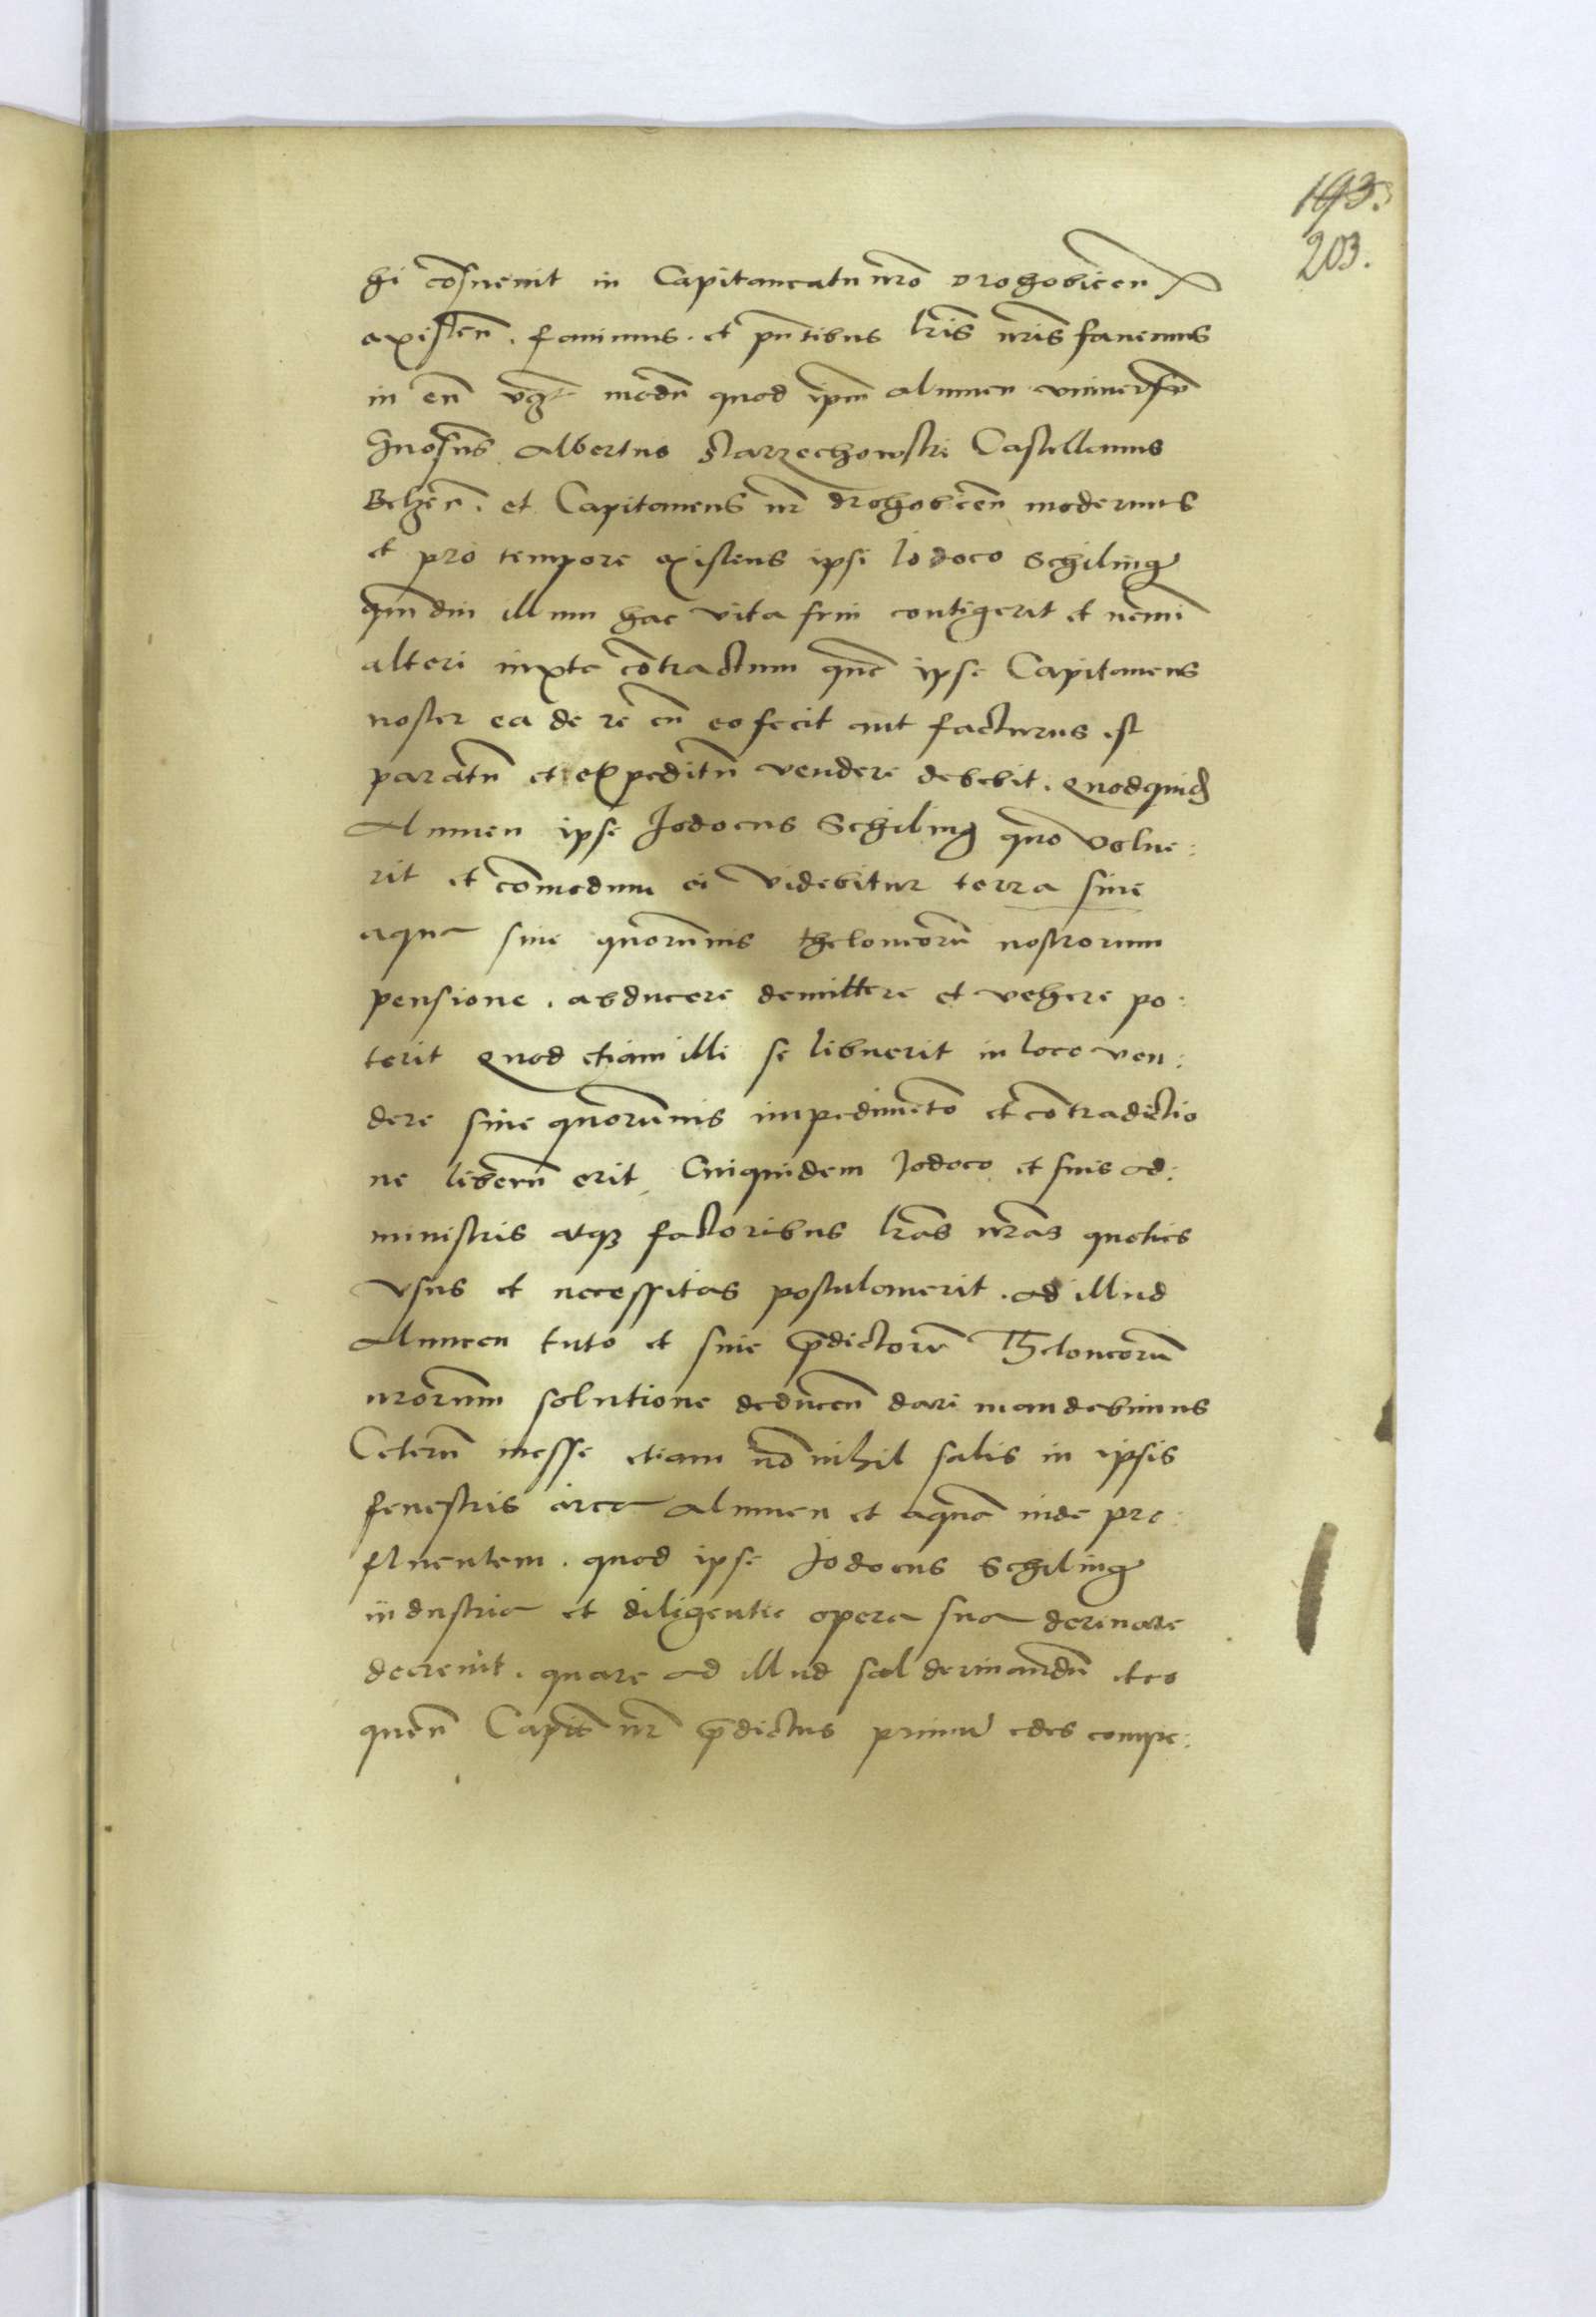 193.
203.
hi cõsuevit in Capitaneatu nr̃o Drohobicen̄
existen̄. favimus. et pñtibus lr̃is nr̃is favemus
in eñ modũ quod ip̃m alumen universũ
Gñosus Albertus Starzechowski Castellanus
Belzen̄. et Capitaneus nr̃ drohobicen̄ modernus
et pro tempore existens ipsi Iodoco Schiling
quã diu illum hac vita frui contigerit et nemini
alteri iuxta cõtractum quẽ ipse Capitaneus
noster ea de re cũ eo fecit aut facturus est
paratũ et expeditũ vendere debebit. Quodquidẽ
Alumen ipse Jodocus Schiling quo volue:
rit et cõmodum ei videbitur terra sive
aqua sine quorũvis theloneorũ nostrorum
pensione. abducere demittere et vehere po:
terit Quod etiam illi se libuerit in loco ven:
dere sine quorũvis impedimẽto et cõtradictio
ne liberũ erit, Cuiquidem Jodoco et suis ad:
ministris atq3 factoribus lr̃as nr̃as quoties
usus et necessitas postulaverit. ad illud
Alumen tuto et sine p̃dictorũ Theloneorũ
nrõrum solutione deducen̄ dari mandabimus
Ceterũ inesse etiam nõ nihil salis in ipsis
fenestris circa alumen et aquã inde pro:
fluentem. quod ipse Jodocus Schiling
industria et diligentia opera sua derivare
decrevit. quare ad illud sal derivandũ et eo
Capit̃ nr̃ p̃dictus edes compe: